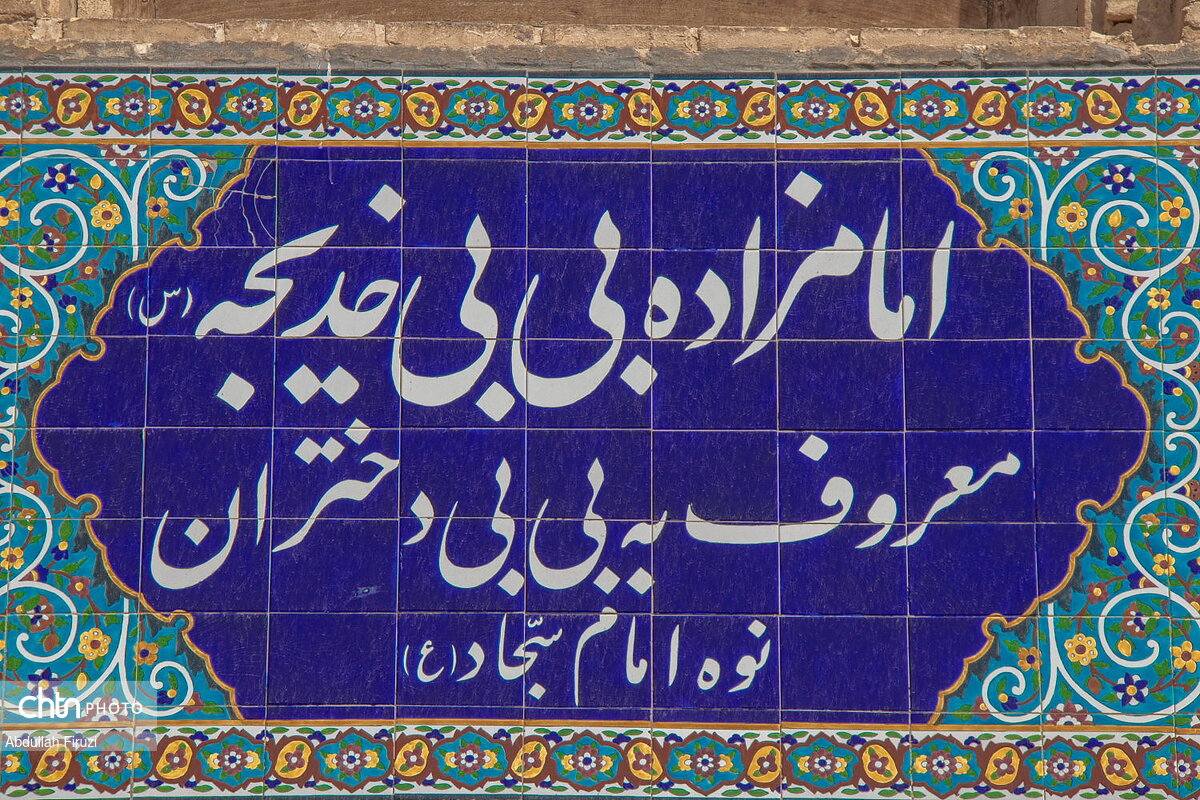 امامزاده بی بی خدیجه (س)
معروف به بی بی دختران
نوه امام سجّاد (ع)
chtn PHOTO
Abdullah Firuzi